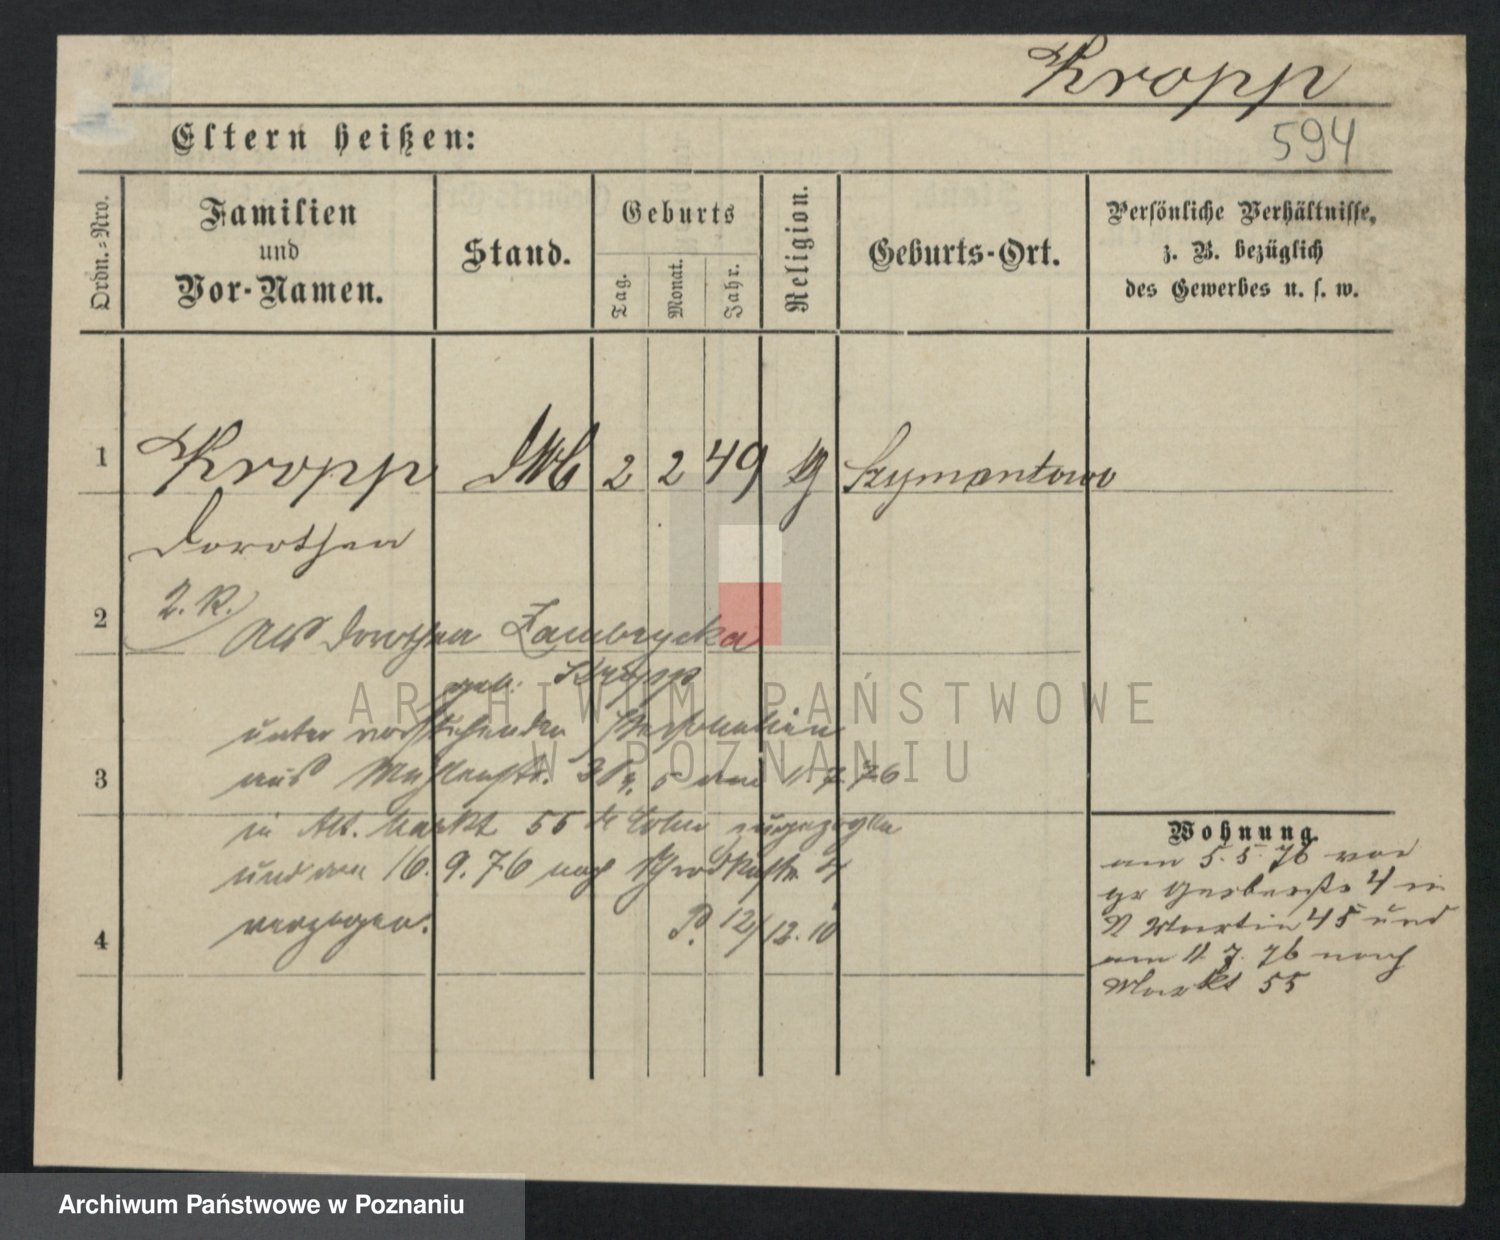 Kropp
594
Eltern heißen:
Ordn.=Nro.
Familien
und
Vor-Namen.
Stand.
Geburts
Tag.
Monat.
Jahr.
Religion.
Geburts-Ort.
Persönliche Verhältnisse,
z. B. bezüglich
des Gewerbes u. s. w.
1
Kropp 2 2 49 Szymantowo
Dorothea
2
2. K.
Als Dorothea Zambrycka
geb. Kropp
unter vorstehenden Personalien
3
aus Mühlenstr. 5 am 11. 7. 76
in Alt. Markt 55 zugezogen
und am 16. 9. 76 nach 4
4
verzogen. P. 12/12. 10
Wohnung.
am 5. 5. 76 von
gr Gerberstr 4 in
S Martin 45 und
am 11. 7. 76 nach
Markt 55
ARCHIWUM PAŃSTWOWE
W POZNANIU
Archiwum Państwowe w Poznaniu